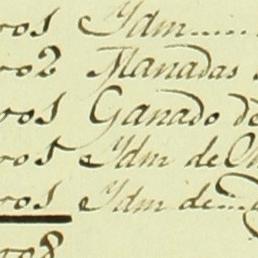 ros Ydm......
ro2 Manadas
ros Ganado de
ros Ydm de O
ros Ydm de...
ro8